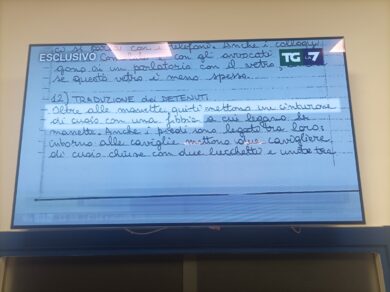 ci si parla con i telefoni. Anche i colloqui
ESCLUSIVO
con gli avvocati
TG LA7
in un parlatorio con il vetro,
se questo vetro è meno spesso.
12) TRADUZIONE dei DETENUTI
Oltre alle manette, quindi mettono un cinturone
di cuoio con una fibbia a cui legano le
manette. Anche i piedi sono legati tra loro:
intorno alle caviglie mettono due cavigliere
di cuoio chiuse con due lucchetti e unite tra